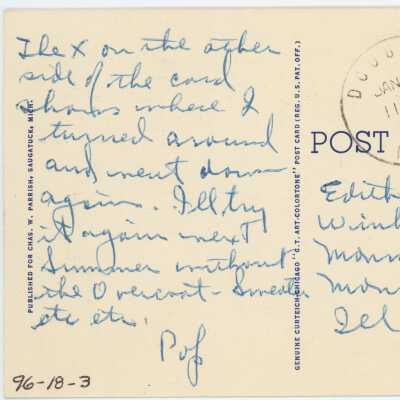 The X on the other
side of the card
shows where I
turned around
and went down
again. I'll try
it again next
Summer without
the Overcoat - Sweater
etc etc.
Pop
96-18-3
PUBLISHED FOR CHAS. W. PARRISH, SAUGATUCK, MICH.
GENUINE CURTEICH-CHICAGO "C.T. ART-COLORTONE" POST CARD (REG. U.S. PAT. OFF.)
POST
DOUG
JAN
11
Edith